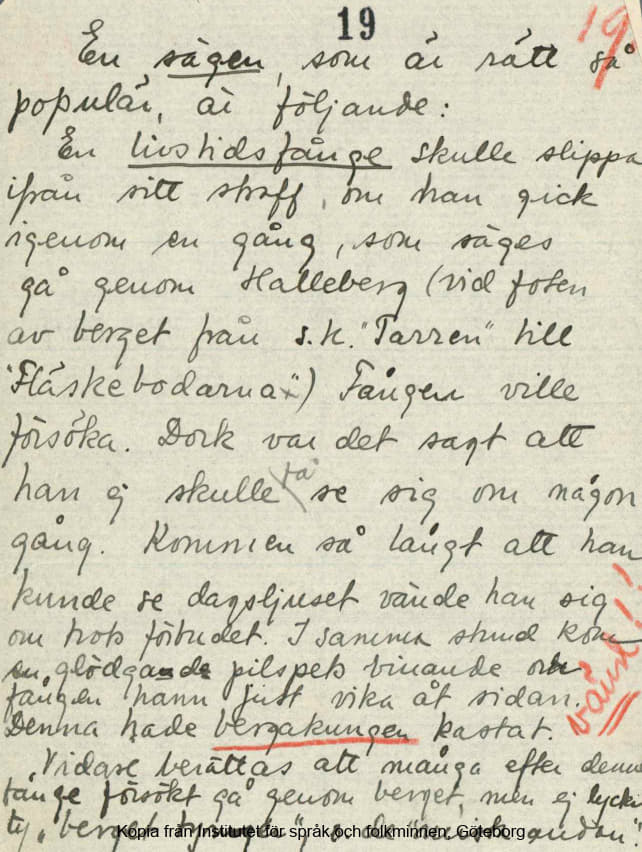 19
19.
En sägen, som är rätt så
populär, är följande:
En livstidsfånge skulle slippa
ifrån sitt straff, om han gick
igenom en gång, som säges
gå genom Halleberg (vid foten
av berget från s.k. "Tarren" till
"Fläskebodarna") Fången ville
försöka. Dock var det sagt att
han ej skulle få se sig om någon
gång. Kommen så långt att han
kunde se dagsljuset vände han sig
om trots förbudet. I samma stund kom
en glödgande pilspets vinande och
fången hann just vika åt sidan.
Denna hade bergakungen kastat.
vänd!!
Vidare berättas att många efter denne
fånge försökt gå genom berget, men ej
ty "berget
Kopia från Institutet för språk och folkminnen, Göteborg